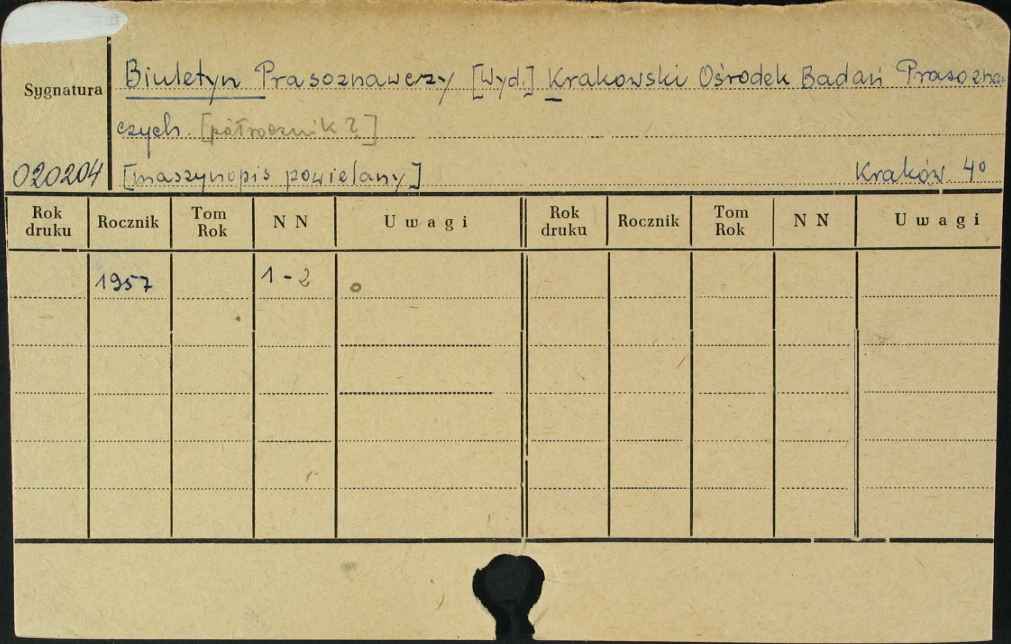 Sygnatura
Biuletyn Prasoznawczy [Wyd.] Krakowski Ośrodek Badań Prasozna-
czych. [półrocznik?]
020204 [maszynopis powielany] Kraków 4°
Rok druku Rocznik Tom Rok N N Uwagi Rok druku Rocznik Tom Rok N N Uwagi
1957 1-2 o